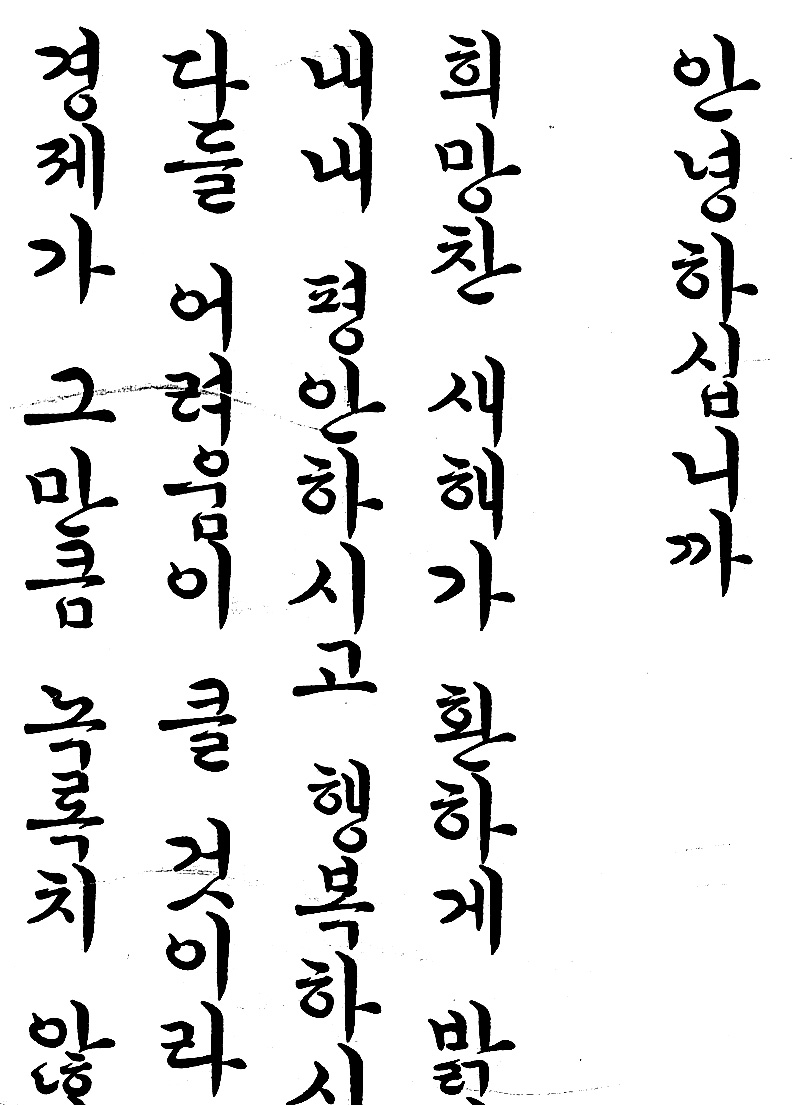 안녕하십니까
희망찬 새해가 환하게 밝
내내 평안하시고 행복하시
다들 어려움이 클 것이라
경제가 그만큼 녹록치 않